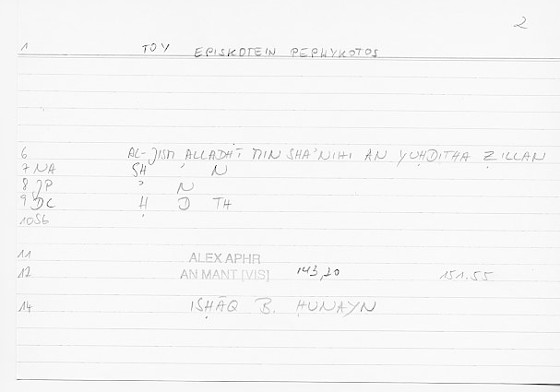 2
1 TOY EPISKOTEIN PEPHYKOTOS
6 AL-JISM ALLADHĪ MIN SHA'NIHI AN YUḤDITHA ẒILLAN
7 NA SH ' N
8 JP ' N
9 DC H D TH
10 S6
11 ALEX APHR
12 AN MANT [VIS] 143,20 151.55
14 ISḤĀQ B. ḤUNAYN